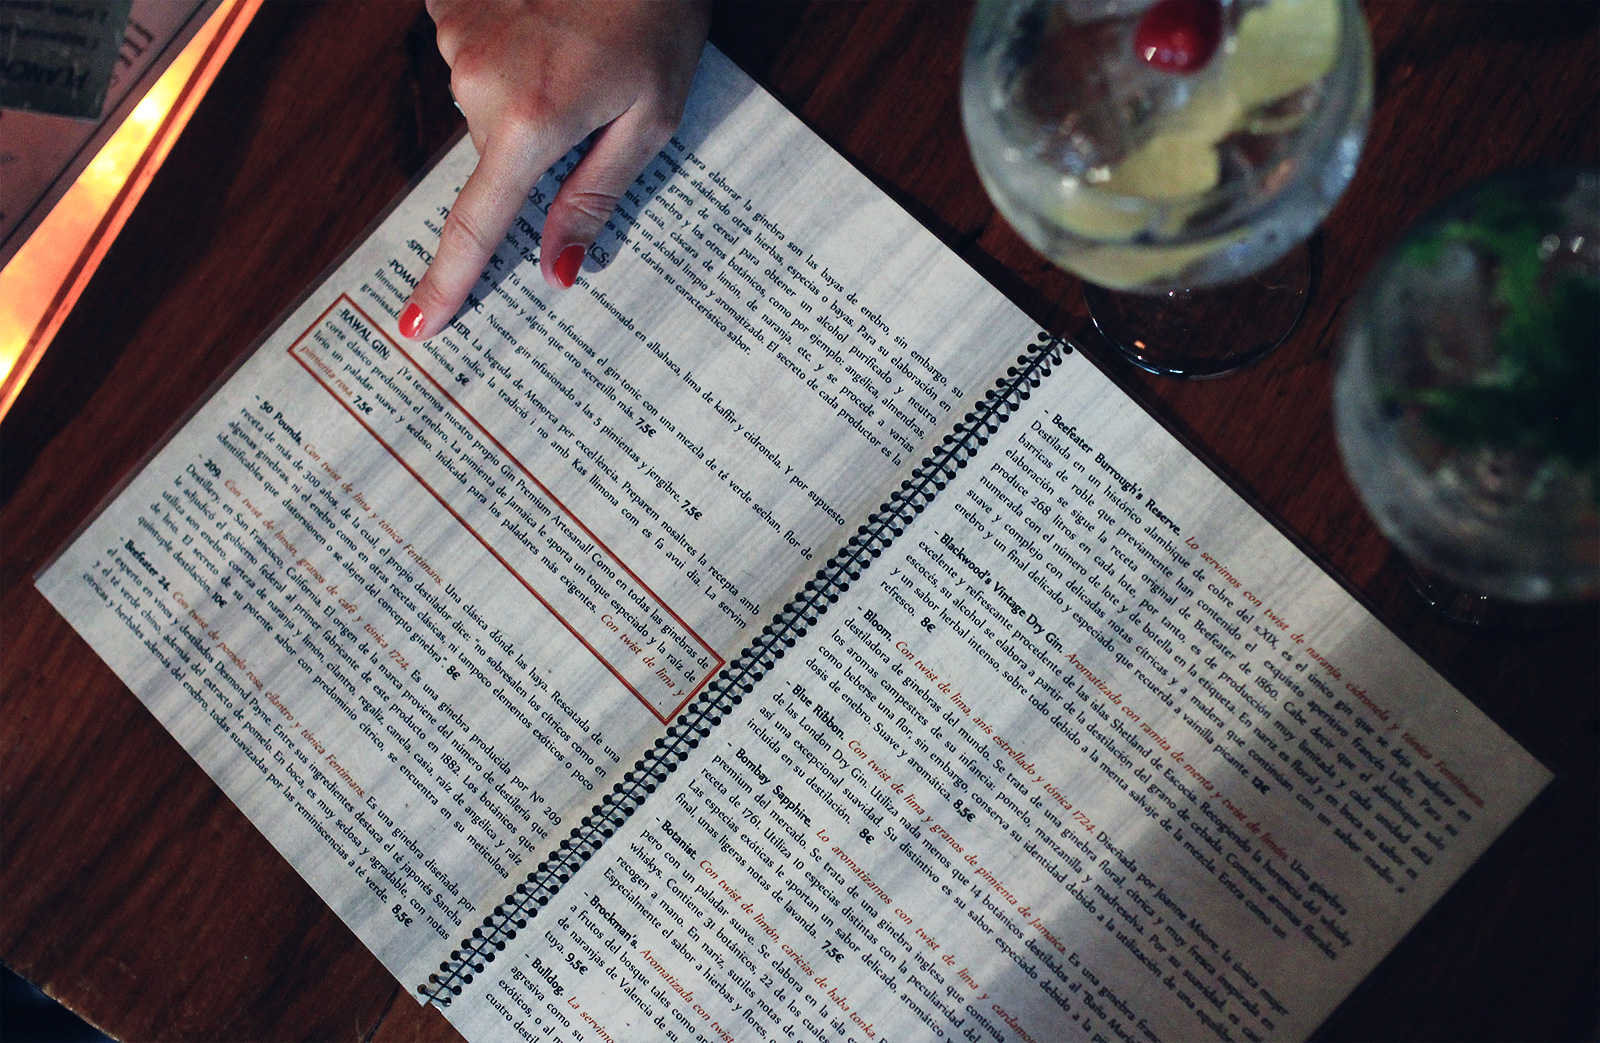 para elaborar la ginebra son las bayas de enebro, sin embargo, su
añadiendo otras hierbas, especias o bayas. Para su elaboración en
un grano de cereal para obtener un alcohol purificado y neutro.
el enebro y los otros botánicos, como por ejemplo: angélica, almendras,
casia, cáscara de limón, de naranja, etc. y se procede a varias
un alcohol limpio y aromatizado. El secreto de cada productor es la
que le darán su característico sabor.
gin infusionado en albahaca, lima de kaffir y cidronela. Y por supuesto
7,5€
Tú mismo te infusionas el gin-tonic con una mezcla de té verde sechan, flor de
de naranja y algún que otro secretillo más. 7,5€
Nuestro gin infusionado a las 5 pimientas y jengibre. 7,5€
La beguda de Menorca per excel·lència. Preparem nosaltres la recepta amb
llimonada com indica la tradició i no amb Kas llimona com es fa avui dia. La servim
deliciosa. 5€
-RAWAL GIN: ¡Ya tenemos nuestro propio Gin Premium Artesanal! Como en todas las ginebras de
corte clásico predomina el enebro. La pimienta de Jamaica le aporta un toque especiado y la raíz de
lirio, un paladar suave y sedoso. Indicada para los paladares más exigentes. Con twist de lima y
pimienta rosa 7,5€
- 50 Pounds. Con twist de lima y tónica Fentimans. Una clásica donde las haya. Rescatada de un
receta de más de 300 años de la cual, el propio destilador dice: "no sobresalen los cítricos como en
algunas ginebras, ni el enebro como en otras recetas clásicas, ni tampoco elementos exóticos o poco
identificables que distorsionen o se alejen del concepto ginebra." 8€
- 209. Con twist de limón, granos de café y tónica 1724. Es una ginebra producida por Nº 209
Distillery, en San Francisco, California. El origen de la marca proviene del número de destilería que
le adjudicó el gobierno federal al primer fabricante de este producto en 1882. Los botánicos que
utiliza son enebro, corteza de naranja y limón, cilantro, regaliz, cancia, casia, raíz de angélica y raíz
de lirio. El secreto de su potente sabor con predominio cítrico, se encuentra en su meticulosa
quíntuple destilación. 10€
- Beefeater 24. Con twist de pomelo rosa, cilantro y tónica Fentimans. Es una ginebra diseñada por
el experto en vinos y destilados Desmond Payne. Entre sus ingredientes destaca el té japonés Sancha
y el té verde chino, además del extracto de pomelo. En boca, es muy sedosa y agradable, con notas
cítricas y herbales además del enebro, todas suavizadas por las reminiscencias a té verde. 8,5€
- Beefeater Burrough's Reserve. Lo servimos con twist de naranja, cidronela y tónica Fentimans.
Destilada en un histórico alambique de cobre del s.XIX, es el único gin que se deja madurar en
barricas de roble, que previamente han contenido el exquisito aperitivo francés, Lillet. Para su
elaboración se sigue la receta original de Beefeater, de 1860. Cabe decir que el alambique solo
produce 268 litros en cada lote, por tanto, es de producción muy limitada y cada unidad está
numerada con el número de lote y de botella en la etiqueta. En nariz es floral y en boca su sabor es
suave y complejo con delicadas notas cítricas y a madera que continúan con un sabor medio a
enebro y un final delicado y especiado que recuerda a vainilla picante. 12€
- Blackwood's Vintage Dry Gin. Aromatizada con ramita de menta y twist de limón. Una ginebra
excelente y refrescante procedente de las islas Shetland de Escocia. Recogiendo la herencia del whisky
escocés, su alcohol se elabora a partir de la destilación del grano de cebada. Contiene aromas florales
y un sabor herbal intenso, sobre todo debido a la menta salvaje de la mezcla. Entra como un
refresco. 8€
- Bloom. Con twist de lima, anís estrellado y tónica 1724. Diseñada por Joanne Moore, la única mujer
destiladora de ginebras del mundo. Se trata de una ginebra floral, cítrica y muy fresca inspirada en
los aromas campestres de su infancia: pomelo, manzanilla y madreselva. Por su suavidad, es casi
como beberse una flor, sin embargo, conserva su identidad debido a la utilización de una equilibrada
dosis de enebro. Suave y aromática. 8,5€
- Blue Ribbon. Con twist de lima y granos de pimienta de Jamaica. Es una ginebra francesa
de las London Dry Gin. Utiliza nada menos que 14 botánicos destilados al "Baño María"
así una excepcional suavidad. Su distintivo es su sabor especiado debido a la
incluida en su destilación. 8€
- Bombay Sapphire. Lo aromatizamos con twist de lima y cardamomo
premium del mercado. Se trata de una ginebra inglesa que continúa
receta de 1761. Utiliza 10 especias distintas con la peculiaridad del
Las especias exóticas le aportan un sabor delicado, aromático y
final, unas ligeras notas de lavanda. 7,5€
- Botanist. Con twist de limón, caricias de haba tonka.
pero con un paladar suave. Se elabora en la isla
whiskys. Contiene 31 botánicos, 22 de los cuales
recogen a mano. En nariz, sutiles notas
Especialmente el sabor a hierbas y flores,
- Brockman's. Aromatizada con twist
a frutos del bosque tales como
de naranjas de Valencia de su
tuya. 9,5€
- Bulldog. La servimos
agresiva como su
exóticos, o al
cuatro